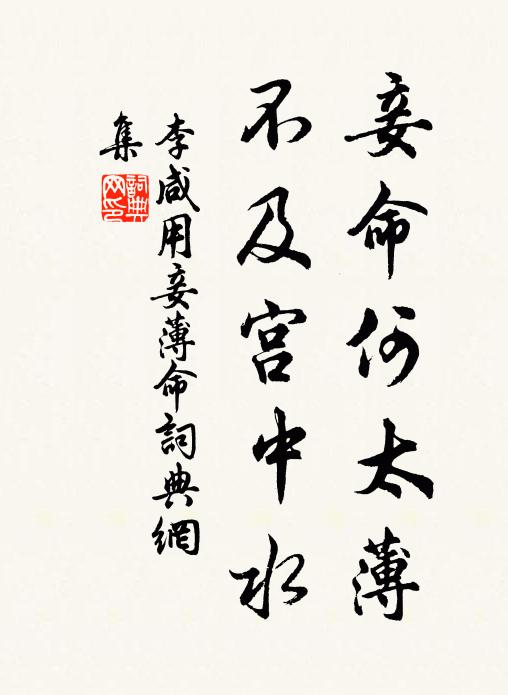 妾命何太薄
不及宫中水
李咸用妾薄命詞典網
集
詞典
网印